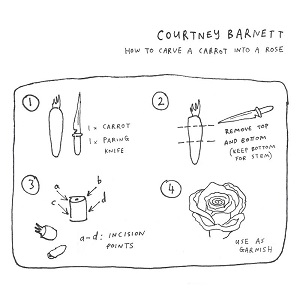 COURTNEY BARNETT
HOW TO CARVE A CARROT INTO A ROSE
1
1 x CARROT
1 x PARING
KNIFE
2
REMOVE TOP
AND BOTTOM
(KEEP BOTTOM
FOR STEM)
3
a
b
c
d
a-d: INCISION
POINTS
4
USE AS
GARNISH